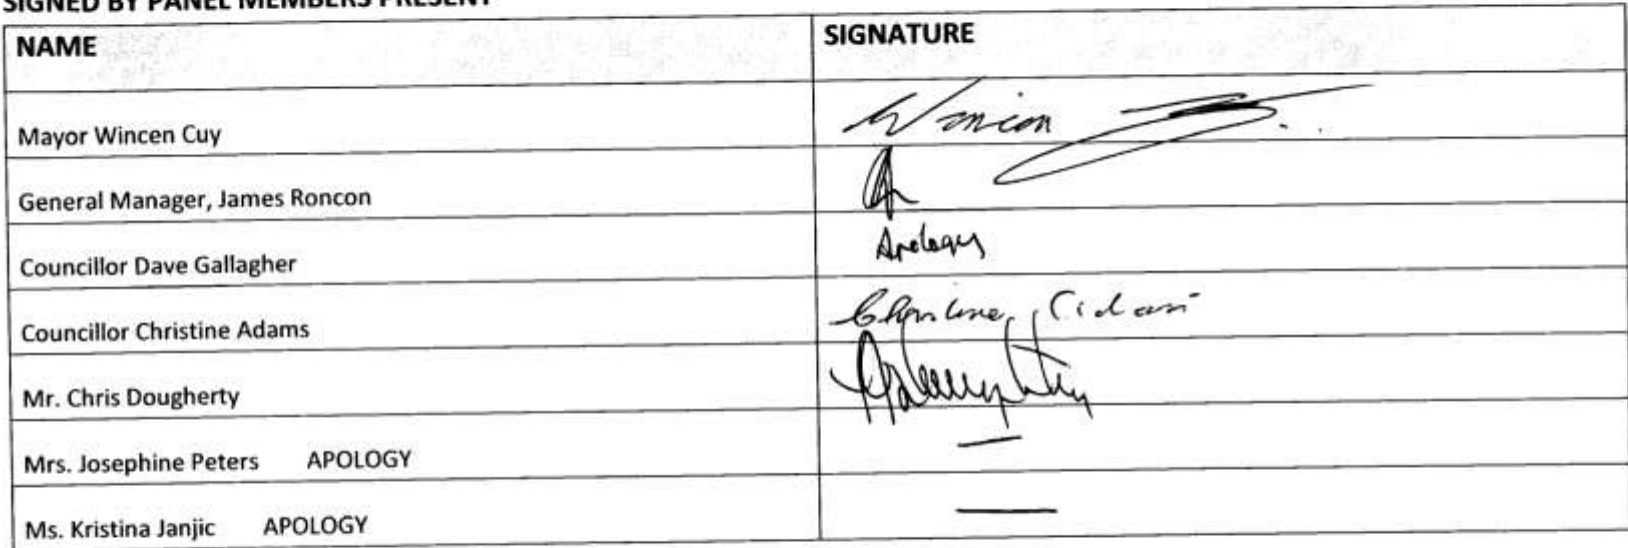 SIGNED BY PANEL MEMBERS PRESENT
NAME SIGNATURE
Mayor Wincen Cuy Wincen
General Manager, James Roncon
Councillor Dave Gallagher Apology
Councillor Christine Adams Christine Adams
Mr. Chris Dougherty
Mrs. Josephine Peters APOLOGY —
Ms. Kristina Janjic APOLOGY —